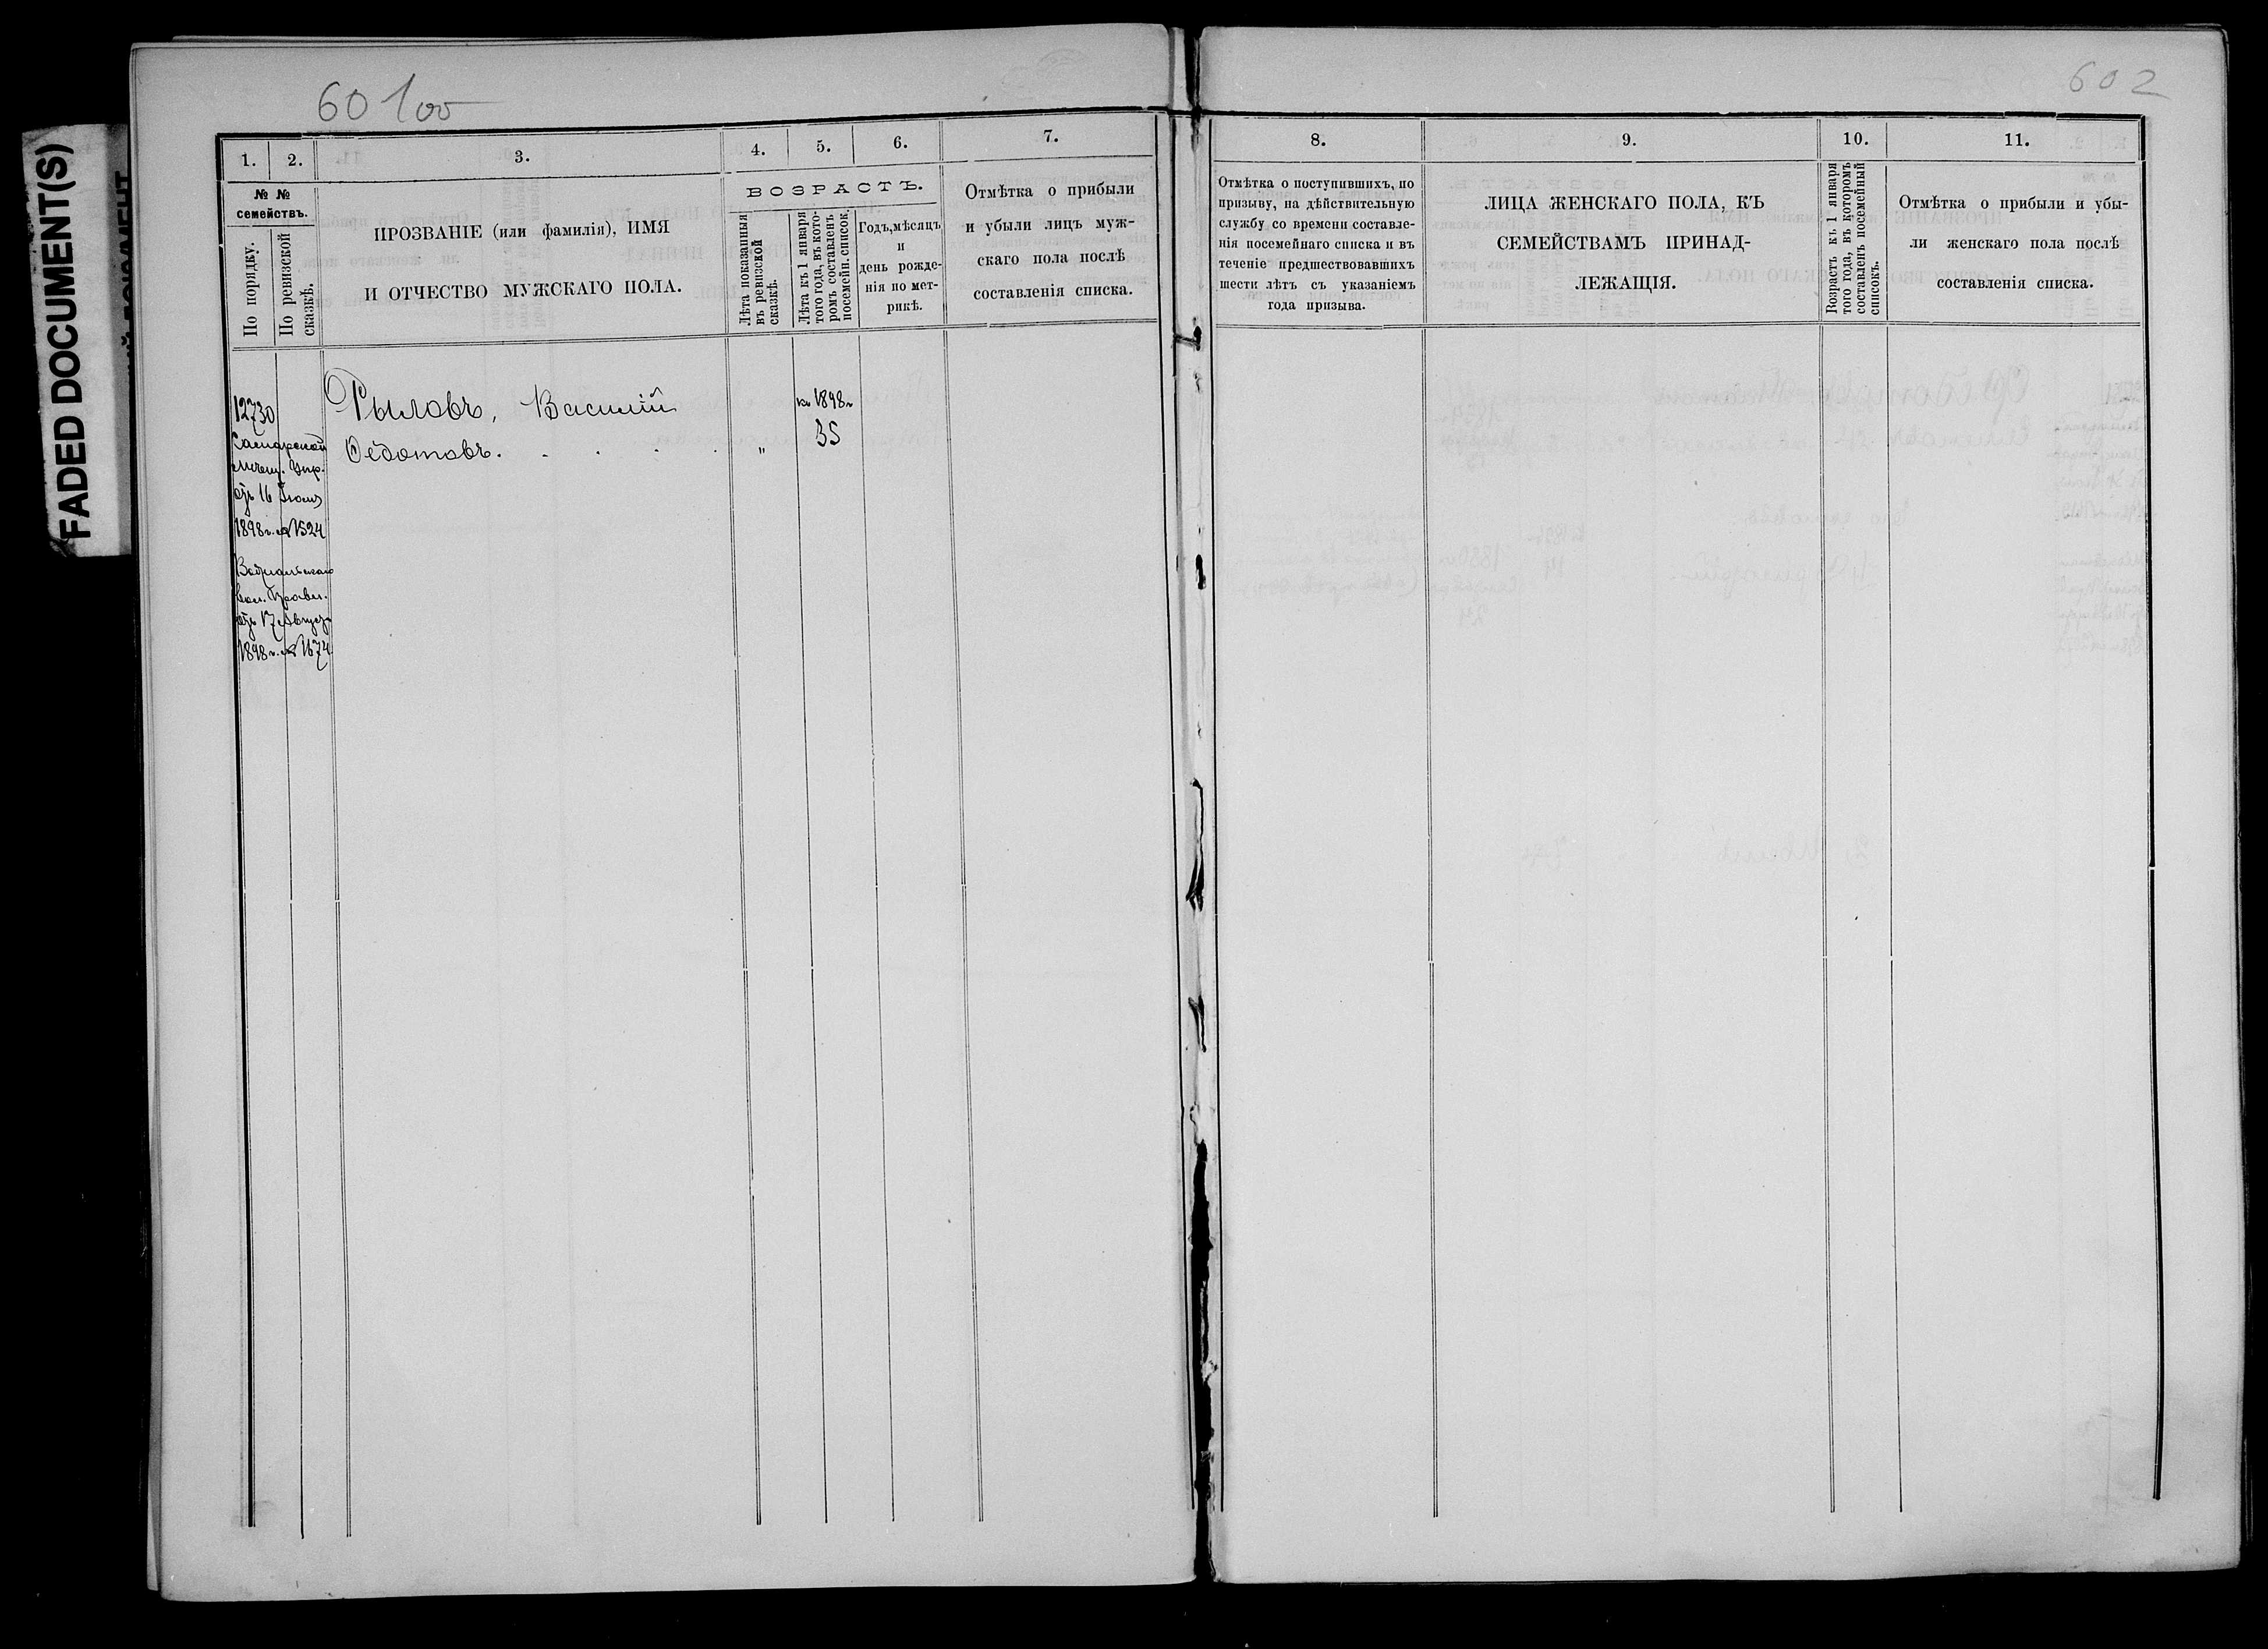 FADED DOCUMENT(S)
60 1 об
602
1.
2.
3.
4.
5.
6.
7.
№ №
семействъ.
По порядку.
По ревизской
сказкѣ.
ПРОЗВАНІЕ (или фамилія), ИМЯ
И ОТЧЕСТВО МУЖСКАГО ПОЛА.
ВОЗРАСТЪ.
Лѣта показанныя
въ ревизской
сказкѣ.
Лѣта къ 1 января
того года, въ кото-
ромъ составленъ
посемейн. список.
Годъ, мѣсяцъ
и
день рожде-
нія по мет-
рикѣ.
Отмѣтка о прибыли
и убыли лицъ муж-
скаго пола послѣ
составленія списка.
12730
Самарской
Мѣщ. Упр.
отъ 16 Іюля
1898 г. № 1524
вол. Правл.
отъ 17 Августа
1898 г. № 1674
Рыловъ, Василій
Ѳедотовъ. . . . .
"
къ 1898 г
35
8.
9.
10.
11.
Отмѣтка о поступившихъ, по
призыву, на дѣйствительную
службу со времени составле-
нія посемейнаго списка и въ
теченіе предшествовавшихъ
шести лѣтъ съ указаніемъ
года призыва.
ЛИЦА ЖЕНСКАГО ПОЛА, КЪ
СЕМЕЙСТВАМЪ ПРИНАД-
ЛЕЖАЩІЯ.
Возрастъ къ 1 января
того года, въ которомъ
составленъ посемейный
списокъ.
Отмѣтка о прибыли и убы-
ли женскаго пола послѣ
составленія списка.